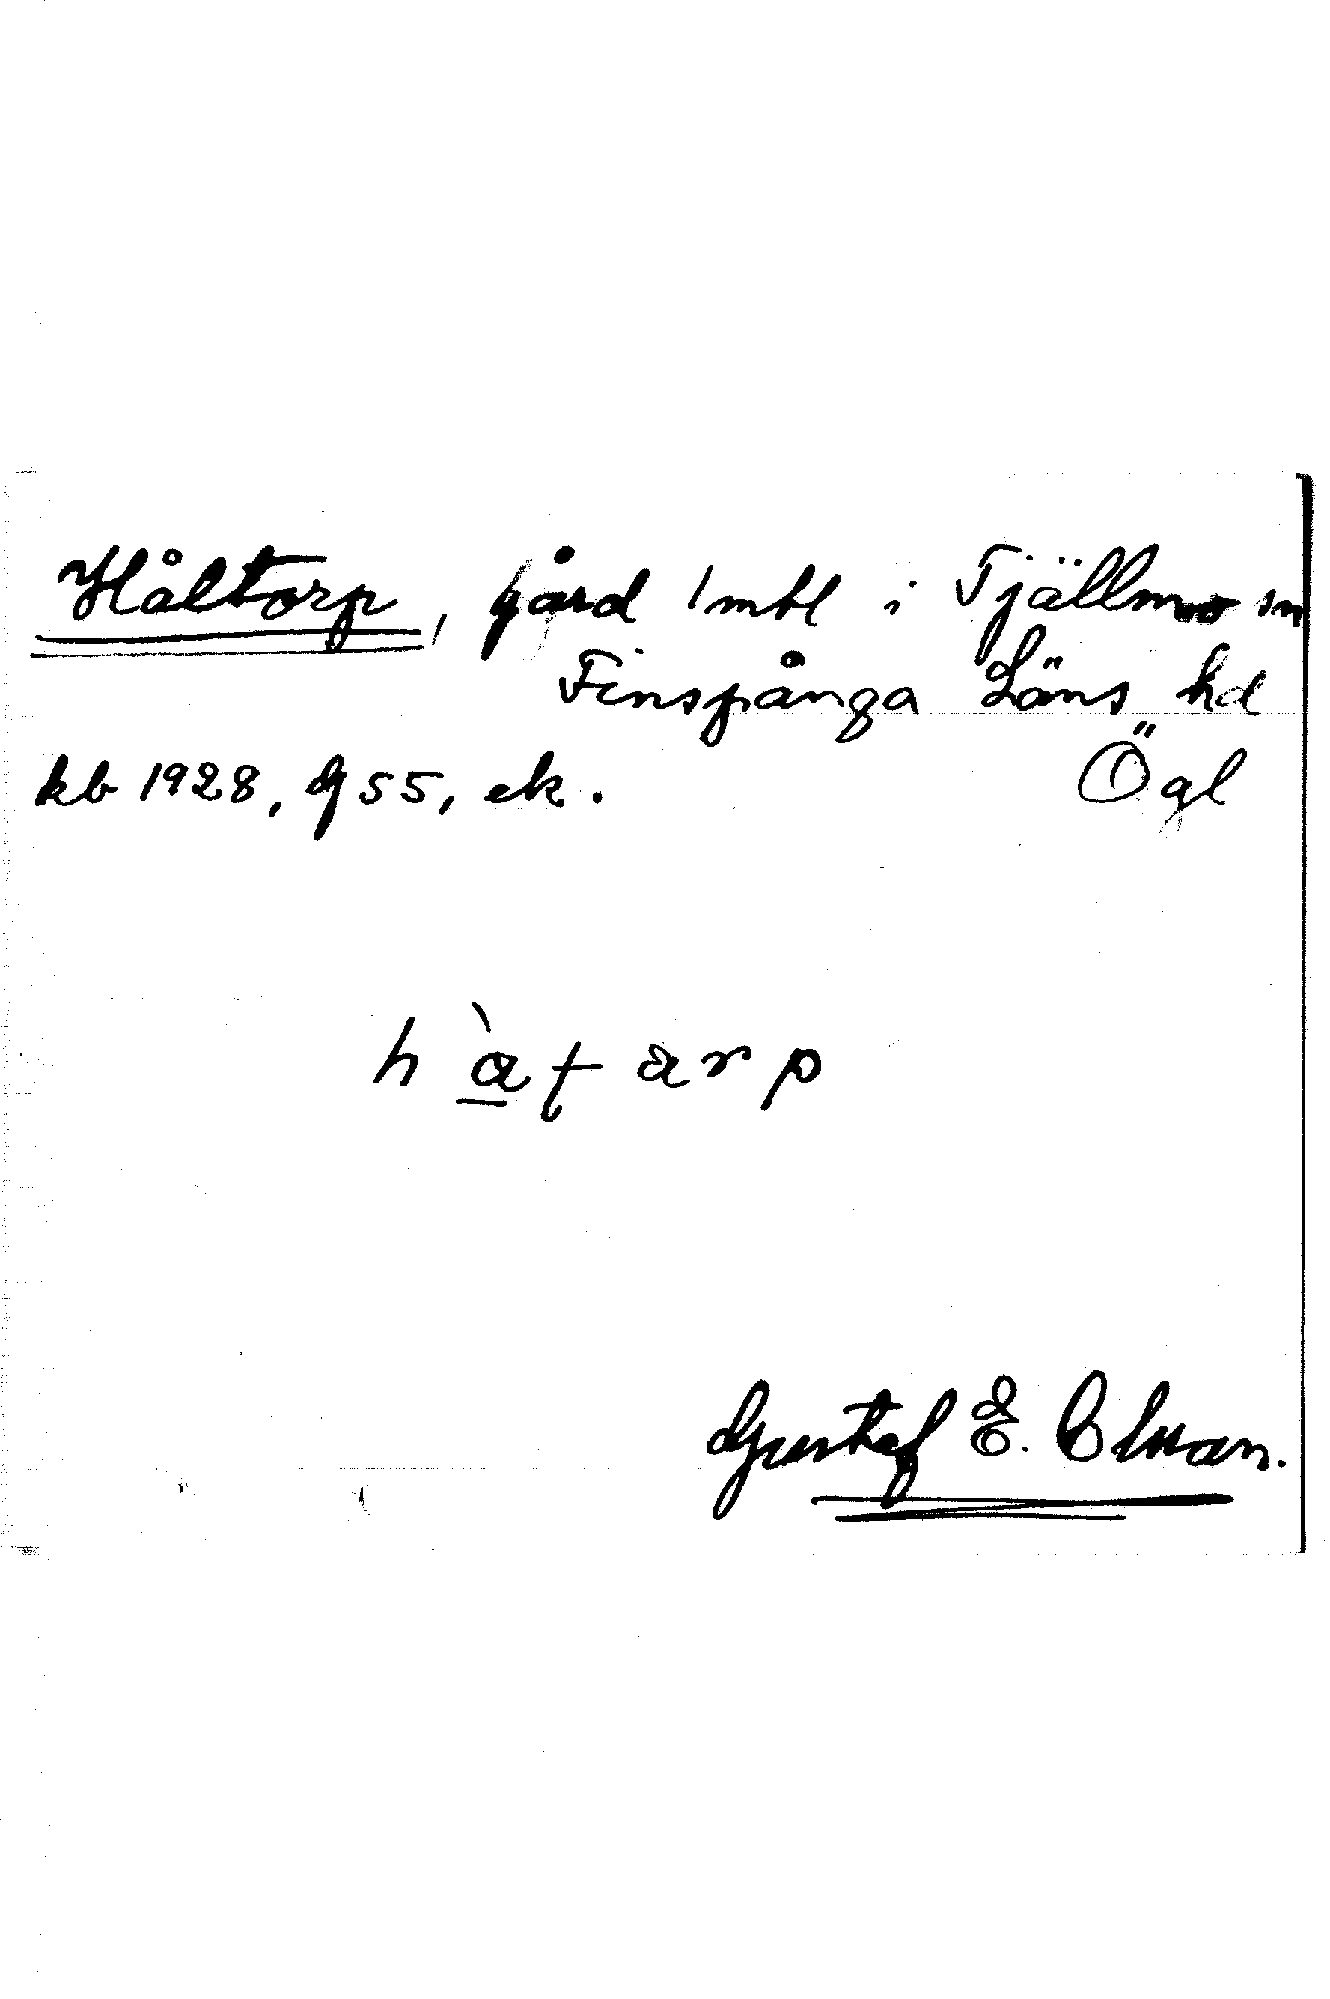 Håltorp, gård 1 mtl i Tjällmo sn
Finspånga Läns hd
Ögl
kb 1928, g 55, ek.
Gustaf E.